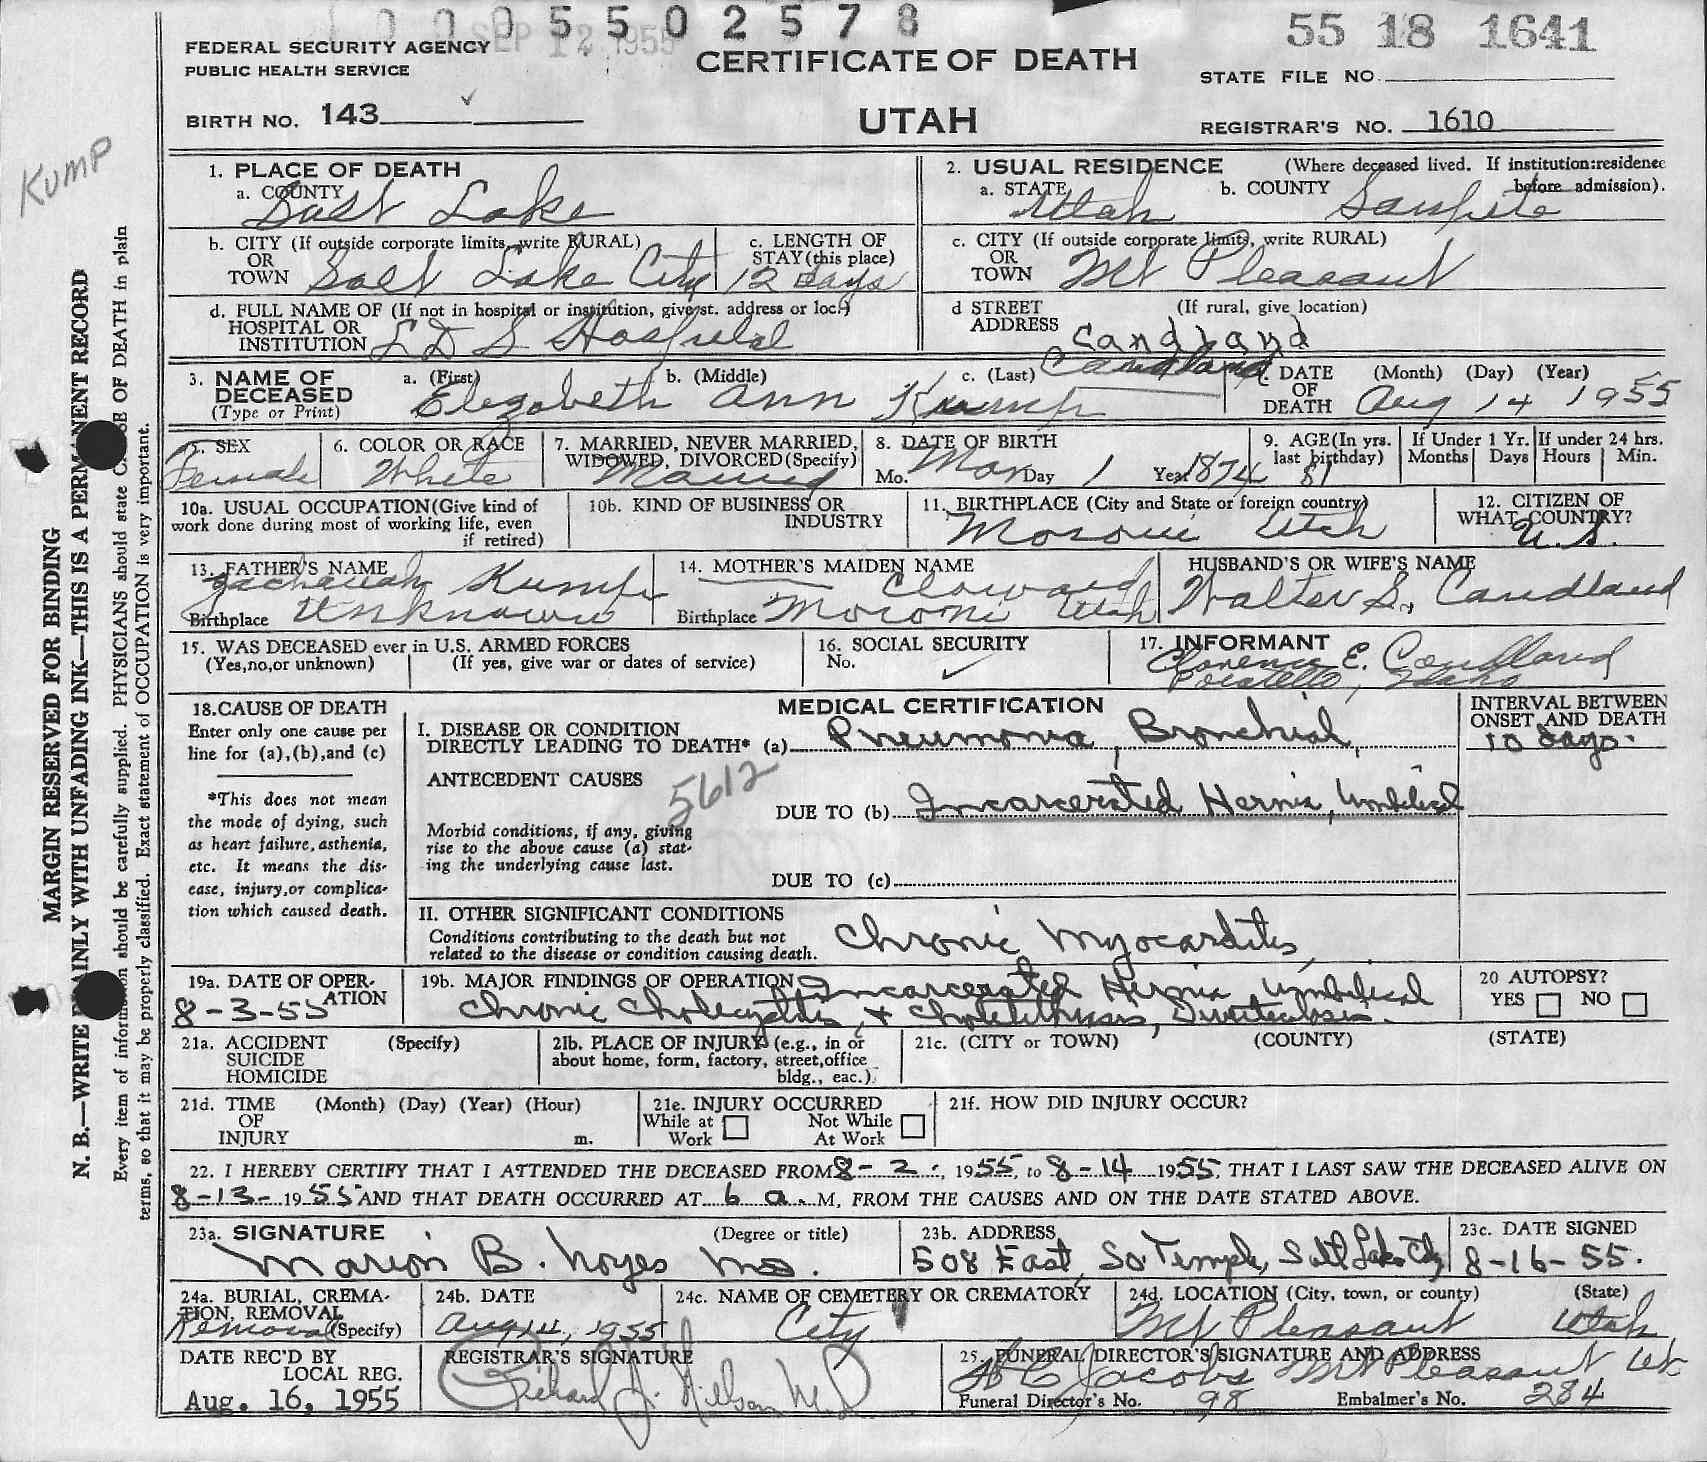 1 0 0 0 5 5 0 2 5 7 8
SEP 12 1955
55 18 1641
FEDERAL SECURITY AGENCY
PUBLIC HEALTH SERVICE
CERTIFICATE OF DEATH
STATE FILE NO.
BIRTH NO. 143
UTAH
REGISTRAR'S NO. 1610
KUMP
MARGIN RESERVED FOR BINDING
N. B.—WRITE PLAINLY WITH UNFADING INK—THIS IS A PERMANENT RECORD
Every item of information should be carefully supplied. PHYSICIANS should state CAUSE OF DEATH in plain
terms, so that it may be properly classified. Exact statement of OCCUPATION is very important.
1. PLACE OF DEATH
a. COUNTY
Salt Lake
2. USUAL RESIDENCE (Where deceased lived. If institution:residence before admission).
a. STATE b. COUNTY
Utah Sanpete
b. CITY (If outside corporate limits, write RURAL)
OR
TOWN Salt Lake City
c. LENGTH OF
STAY (this place)
12 Days
c. CITY (If outside corporate limits, write RURAL)
OR
TOWN Mt Pleasant
d. FULL NAME OF (If not in hospital or institution, give st. address or loc.)
HOSPITAL OR
INSTITUTION L D S Hospital
d STREET (If rural, give location)
ADDRESS
Candland
3. NAME OF
DECEASED
(Type or Print)
a. (First) b. (Middle) c. (Last) Candland
Elezabeth Ann Kump
4. DATE (Month) (Day) (Year)
OF
DEATH Aug 14 1955
5. SEX
Female
6. COLOR OR RACE
White
7. MARRIED, NEVER MARRIED,
WIDOWED, DIVORCED (Specify)
Married
8. DATE OF BIRTH
Mo. Mar Day 1 Year 1874
9. AGE (In yrs.
last birthday)
81
If Under 1 Yr.
Months Days
If under 24 hrs.
Hours Min.
10a. USUAL OCCUPATION (Give kind of
work done during most of working life, even
if retired)
10b. KIND OF BUSINESS OR
INDUSTRY
11. BIRTHPLACE (City and State or foreign country)
Moroni Utah
12. CITIZEN OF
WHAT COUNTRY?
U.S.
13. FATHER'S NAME
Zachariah Kump
Birthplace Unknown
14. MOTHER'S MAIDEN NAME
Cloward
Birthplace Moroni Utah
HUSBAND'S OR WIFE'S NAME
Walter S. Candland
15. WAS DECEASED ever in U.S. ARMED FORCES
(Yes,no,or unknown) (If yes, give war or dates of service)
16. SOCIAL SECURITY
No.
17. INFORMANT
Clarence E. Candland
Pocatello, Idaho
18. CAUSE OF DEATH
Enter only one cause per
line for (a),(b),and (c)
*This does not mean
the mode of dying, such
as heart failure, asthenia,
etc. It means the dis-
ease, injury,or complica-
tion which caused death.
MEDICAL CERTIFICATION
INTERVAL BETWEEN
ONSET AND DEATH
I. DISEASE OR CONDITION
DIRECTLY LEADING TO DEATH* (a) Pneumonia, Bronchial,
10 days.
ANTECEDENT CAUSES
5612
DUE TO (b) Incarcerated Hernia, Umbilical
Morbid conditions, if any, giving
rise to the above cause (a) stat-
ing the underlying cause last.
DUE TO (c)
II. OTHER SIGNIFICANT CONDITIONS
Conditions contributing to the death but not
related to the disease or condition causing death.
Chronic Myocarditis,
19a. DATE OF OPER-
ATION
8-3-55
19b. MAJOR FINDINGS OF OPERATION Incarcerated Hernia, Umbilical
Chronic Cholecystitis + Cholelithiasis, Diverticulosis.
20 AUTOPSY?
YES NO
21a. ACCIDENT (Specify)
SUICIDE
HOMICIDE
21b. PLACE OF INJURY (e.g., in or
about home, form, factory, street,office
bldg., eac.)
21c. (CITY or TOWN) (COUNTY) (STATE)
21d. TIME (Month) (Day) (Year) (Hour)
OF
INJURY m.
21e. INJURY OCCURRED
While at Work Not While At Work
21f. HOW DID INJURY OCCUR?
22. I HEREBY CERTIFY THAT I ATTENDED THE DECEASED FROM 8-2-, 1955, to 8-14 1955, THAT I LAST SAW THE DECEASED ALIVE ON
8-13- 1955 AND THAT DEATH OCCURRED AT 6 a. M, FROM THE CAUSES AND ON THE DATE STATED ABOVE.
23a. SIGNATURE (Degree or title)
Marion B. Noyes MD.
23b. ADDRESS
508 East So Temple, Salt Lake City
23c. DATE SIGNED
8-16-55.
24a. BURIAL, CREMA-
TION, REMOVAL
Removal (Specify)
24b. DATE
Aug 14, 1955
24c. NAME OF CEMETERY OR CREMATORY
City
24d. LOCATION (City, town, or county) (State)
Mt Pleasant Utah
DATE REC'D BY
LOCAL REG.
Aug. 16, 1955
REGISTRAR'S SIGNATURE
Richard J. Nilson M D
25. FUNERAL DIRECTOR'S SIGNATURE AND ADDRESS
Jacobs Mt Pleasant Ut
Funeral Director's No. 98 Embalmer's No. 284